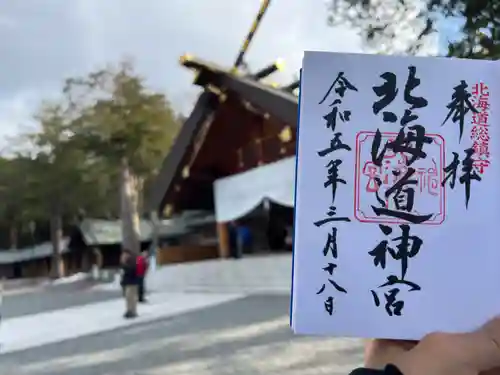 奉拝
北海道総鎮守
北海道神宮
令和五年三月十八日